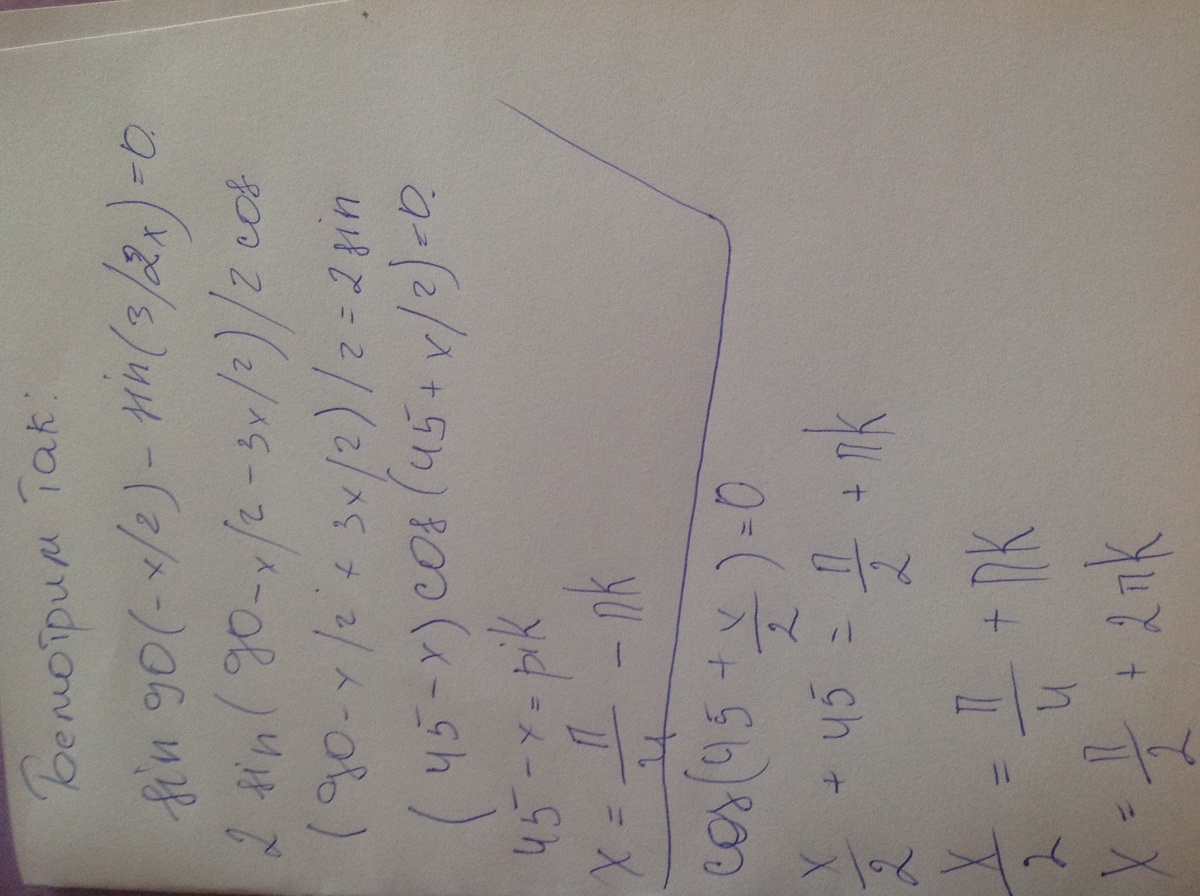 Бсмотрим так:
sin 90(-x/2) - sin(3/2x)=0.
2 sin(90-x/2-3x/2)/2 cos
(90-x/2+3x/2)/2=2sin
(45-x)cos(45+x/2)=0.
45-x=pik
x=π/4-πk
cos(45+x/2)=0
x/2+45=π/2+πk
x/2=π/4+πk
x=π/2+2πk